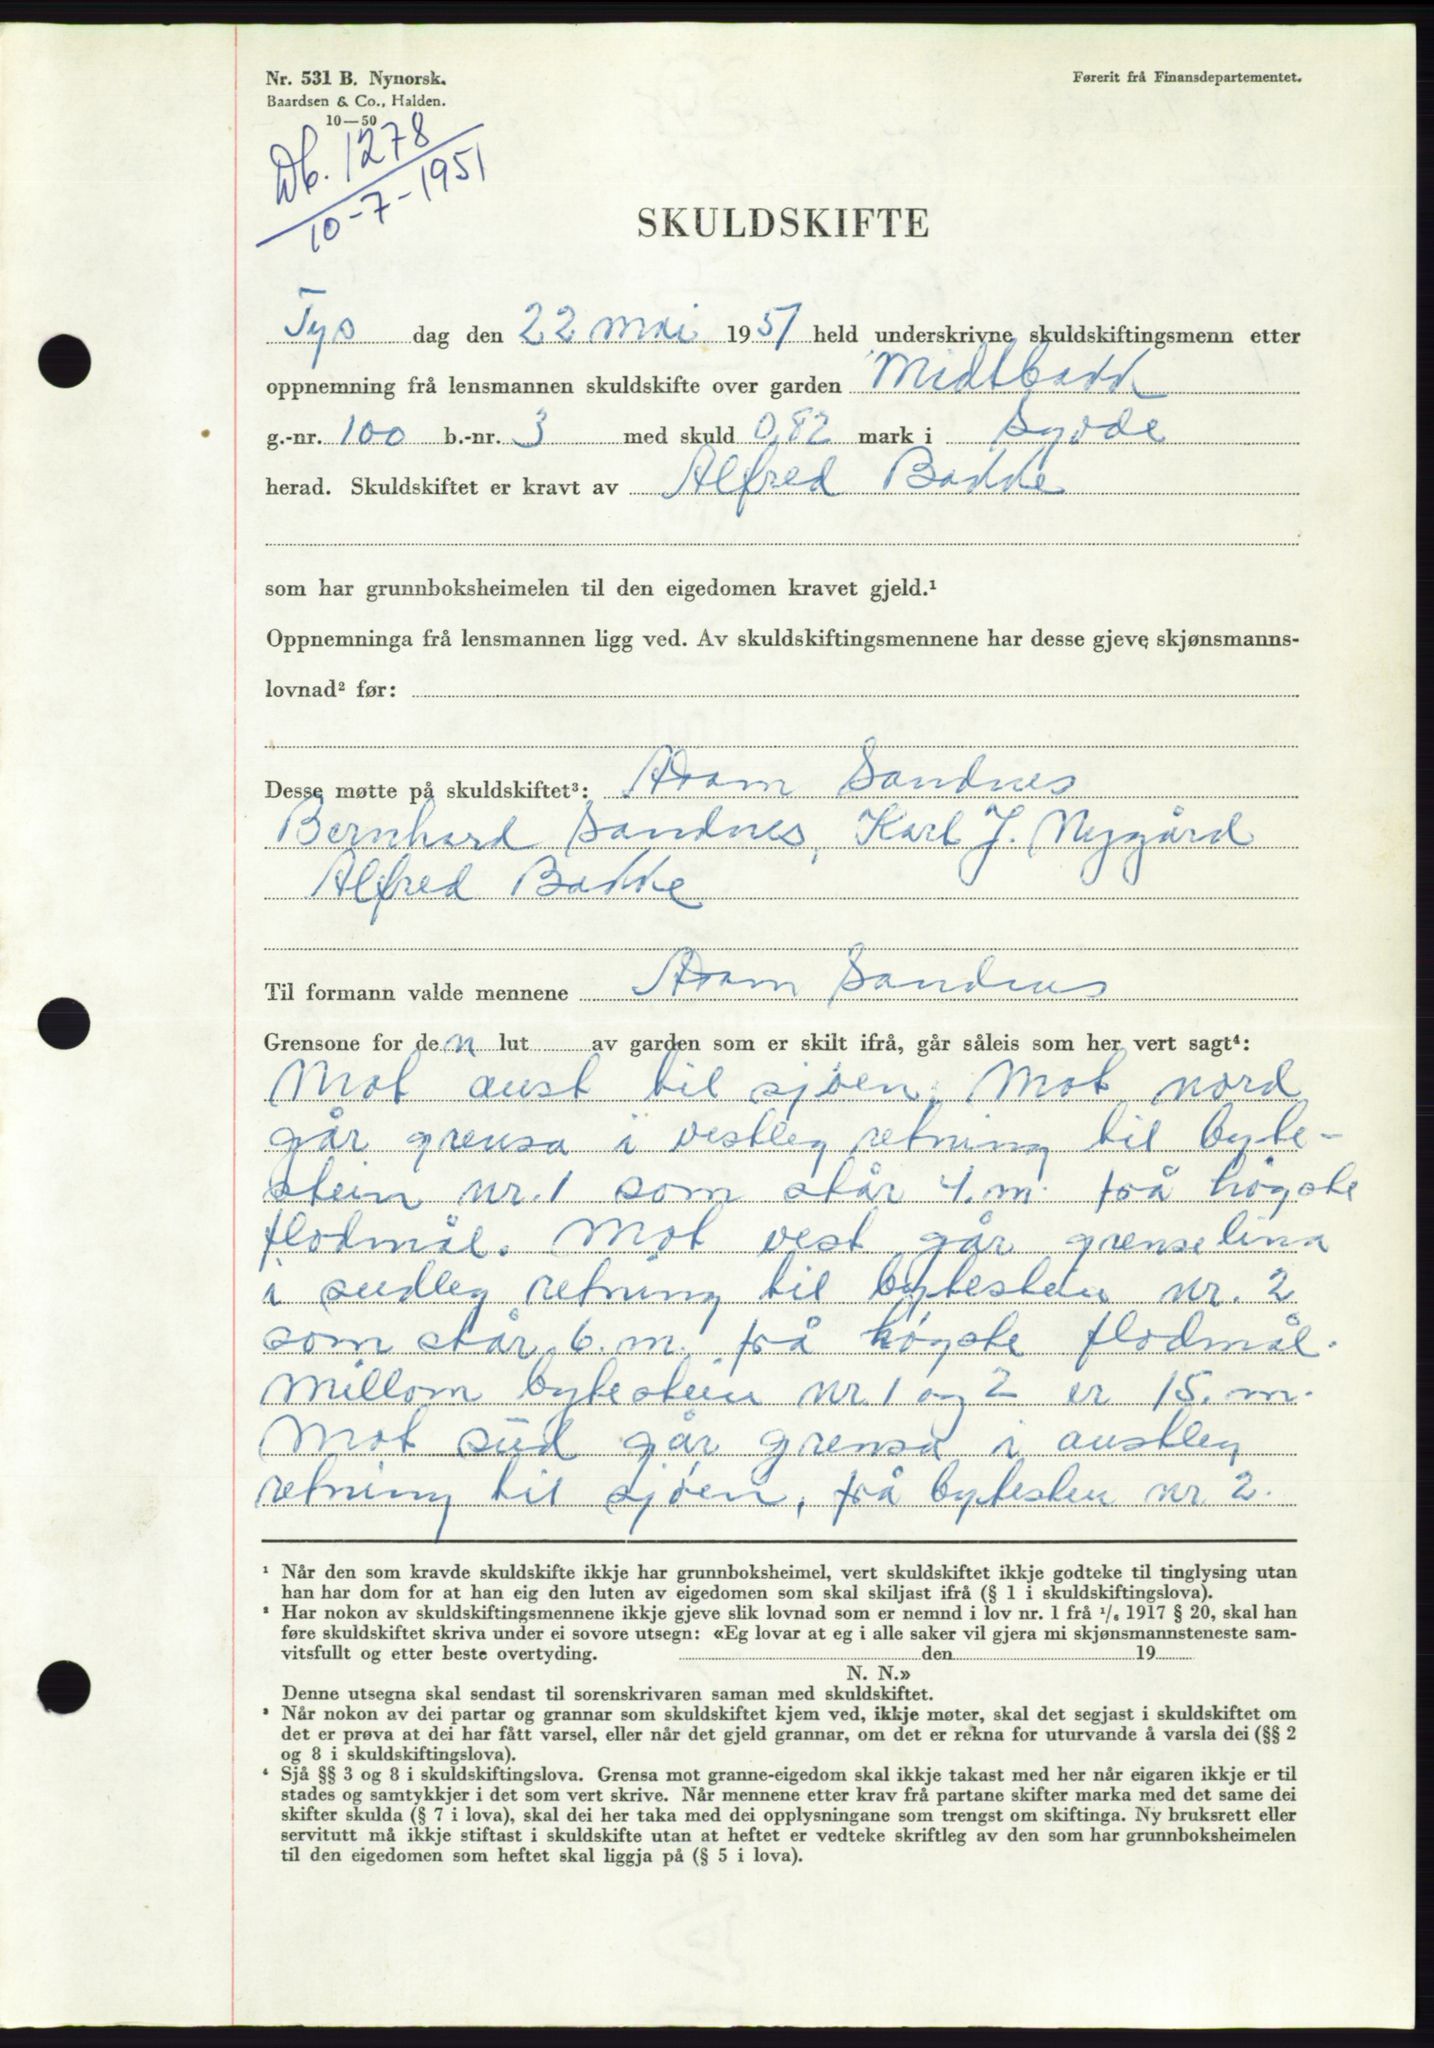 Nr. 531 B. Nynorsk.
Baardsen & Co., Halden.
10—50
Førerit frå Finansdepartementet.
Db. 1278
10-7-1951
SKULDSKIFTE
Tys dag den 22 mai 1951 held underskrivne skuldskiftingsmenn etter
oppnemning frå lensmannen skuldskifte over garden Midtbadd
g.-nr. 100 b.-nr. 3 med skuld 0,82 mark i Syvde
herad. Skuldskiftet er kravt av Alfred Badde
som har grunnboksheimelen til den eigedomen kravet gjeld.¹
Oppnemninga frå lensmannen ligg ved. Av skuldskiftingsmennene har desse gjeve skjønsmanns-
lovnad² før:
Desse møtte på skuldskiftet³: Adam Sandnes
Bernhard Sandnes, Karl J. Nygård
Alfred Badde
Til formann valde mennene Adam Sandnes
Grensone for den lut av garden som er skilt ifrå, går såleis som her vert sagt⁴:
Mot aust til sjøen. Mot nord
går grensa i vestleg retning til byte-
stein nr. 1 som står 4. m. frå høgste
flodmål. Mot vest går grenselina
i sudleg retning til bytestein nr. 2
som står 6. m. frå høgste flodmål.
Millom bytestein nr. 1 og 2 er 15. m.
Mot sud går grensa i austleg
retning til sjøen, frå bytestein nr 2.
¹ Når den som kravde skuldskifte ikkje har grunnboksheimel, vert skuldskiftet ikkje godteke til tinglysing utan
han har dom for at han eig den luten av eigedomen som skal skiljast ifrå (§ 1 i skuldskiftingslova).
² Har nokon av skuldskiftingsmennene ikkje gjeve slik lovnad som er nemnd i lov nr. 1 frå ¹/₆ 1917 § 20, skal han
føre skuldskiftet skriva under ei sovore utsegn: «Eg lovar at eg i alle saker vil gjera mi skjønsmannsteneste sam-
vitsfullt og etter beste overtyding. den 19
N. N.»
Denne utsegna skal sendast til sorenskrivaren saman med skuldskiftet.
³ Når nokon av dei partar og grannar som skuldskiftet kjem ved, ikkje møter, skal det segjast i skuldskiftet om
det er prøva at dei har fått varsel, eller når det gjeld grannar, om det er rekna for uturvande å varsla dei (§§ 2
og 8 i skuldskiftingslova).
⁴ Sjå §§ 3 og 8 i skuldskiftingslova. Grensa mot granne-eigedom skal ikkje takast med her når eigaren ikkje er til
stades og samtykkjer i det som vert skrive. Når mennene etter krav frå partane skifter marka med det same dei
skifter skulda (§ 7 i lova), skal dei her taka med dei opplysningane som trengst om skiftinga. Ny bruksrett eller
servitutt må ikkje stiftast i skuldskifte utan at heftet er vedteke skriftleg av den som har grunnboksheimelen
til den eigedomen som heftet skal liggja på (§ 5 i lova).